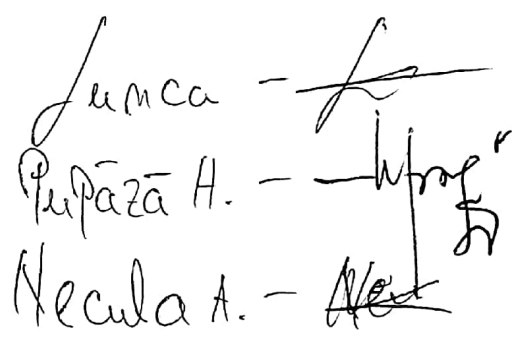 Lunca -
Pupāzā A. -
Necula A. -